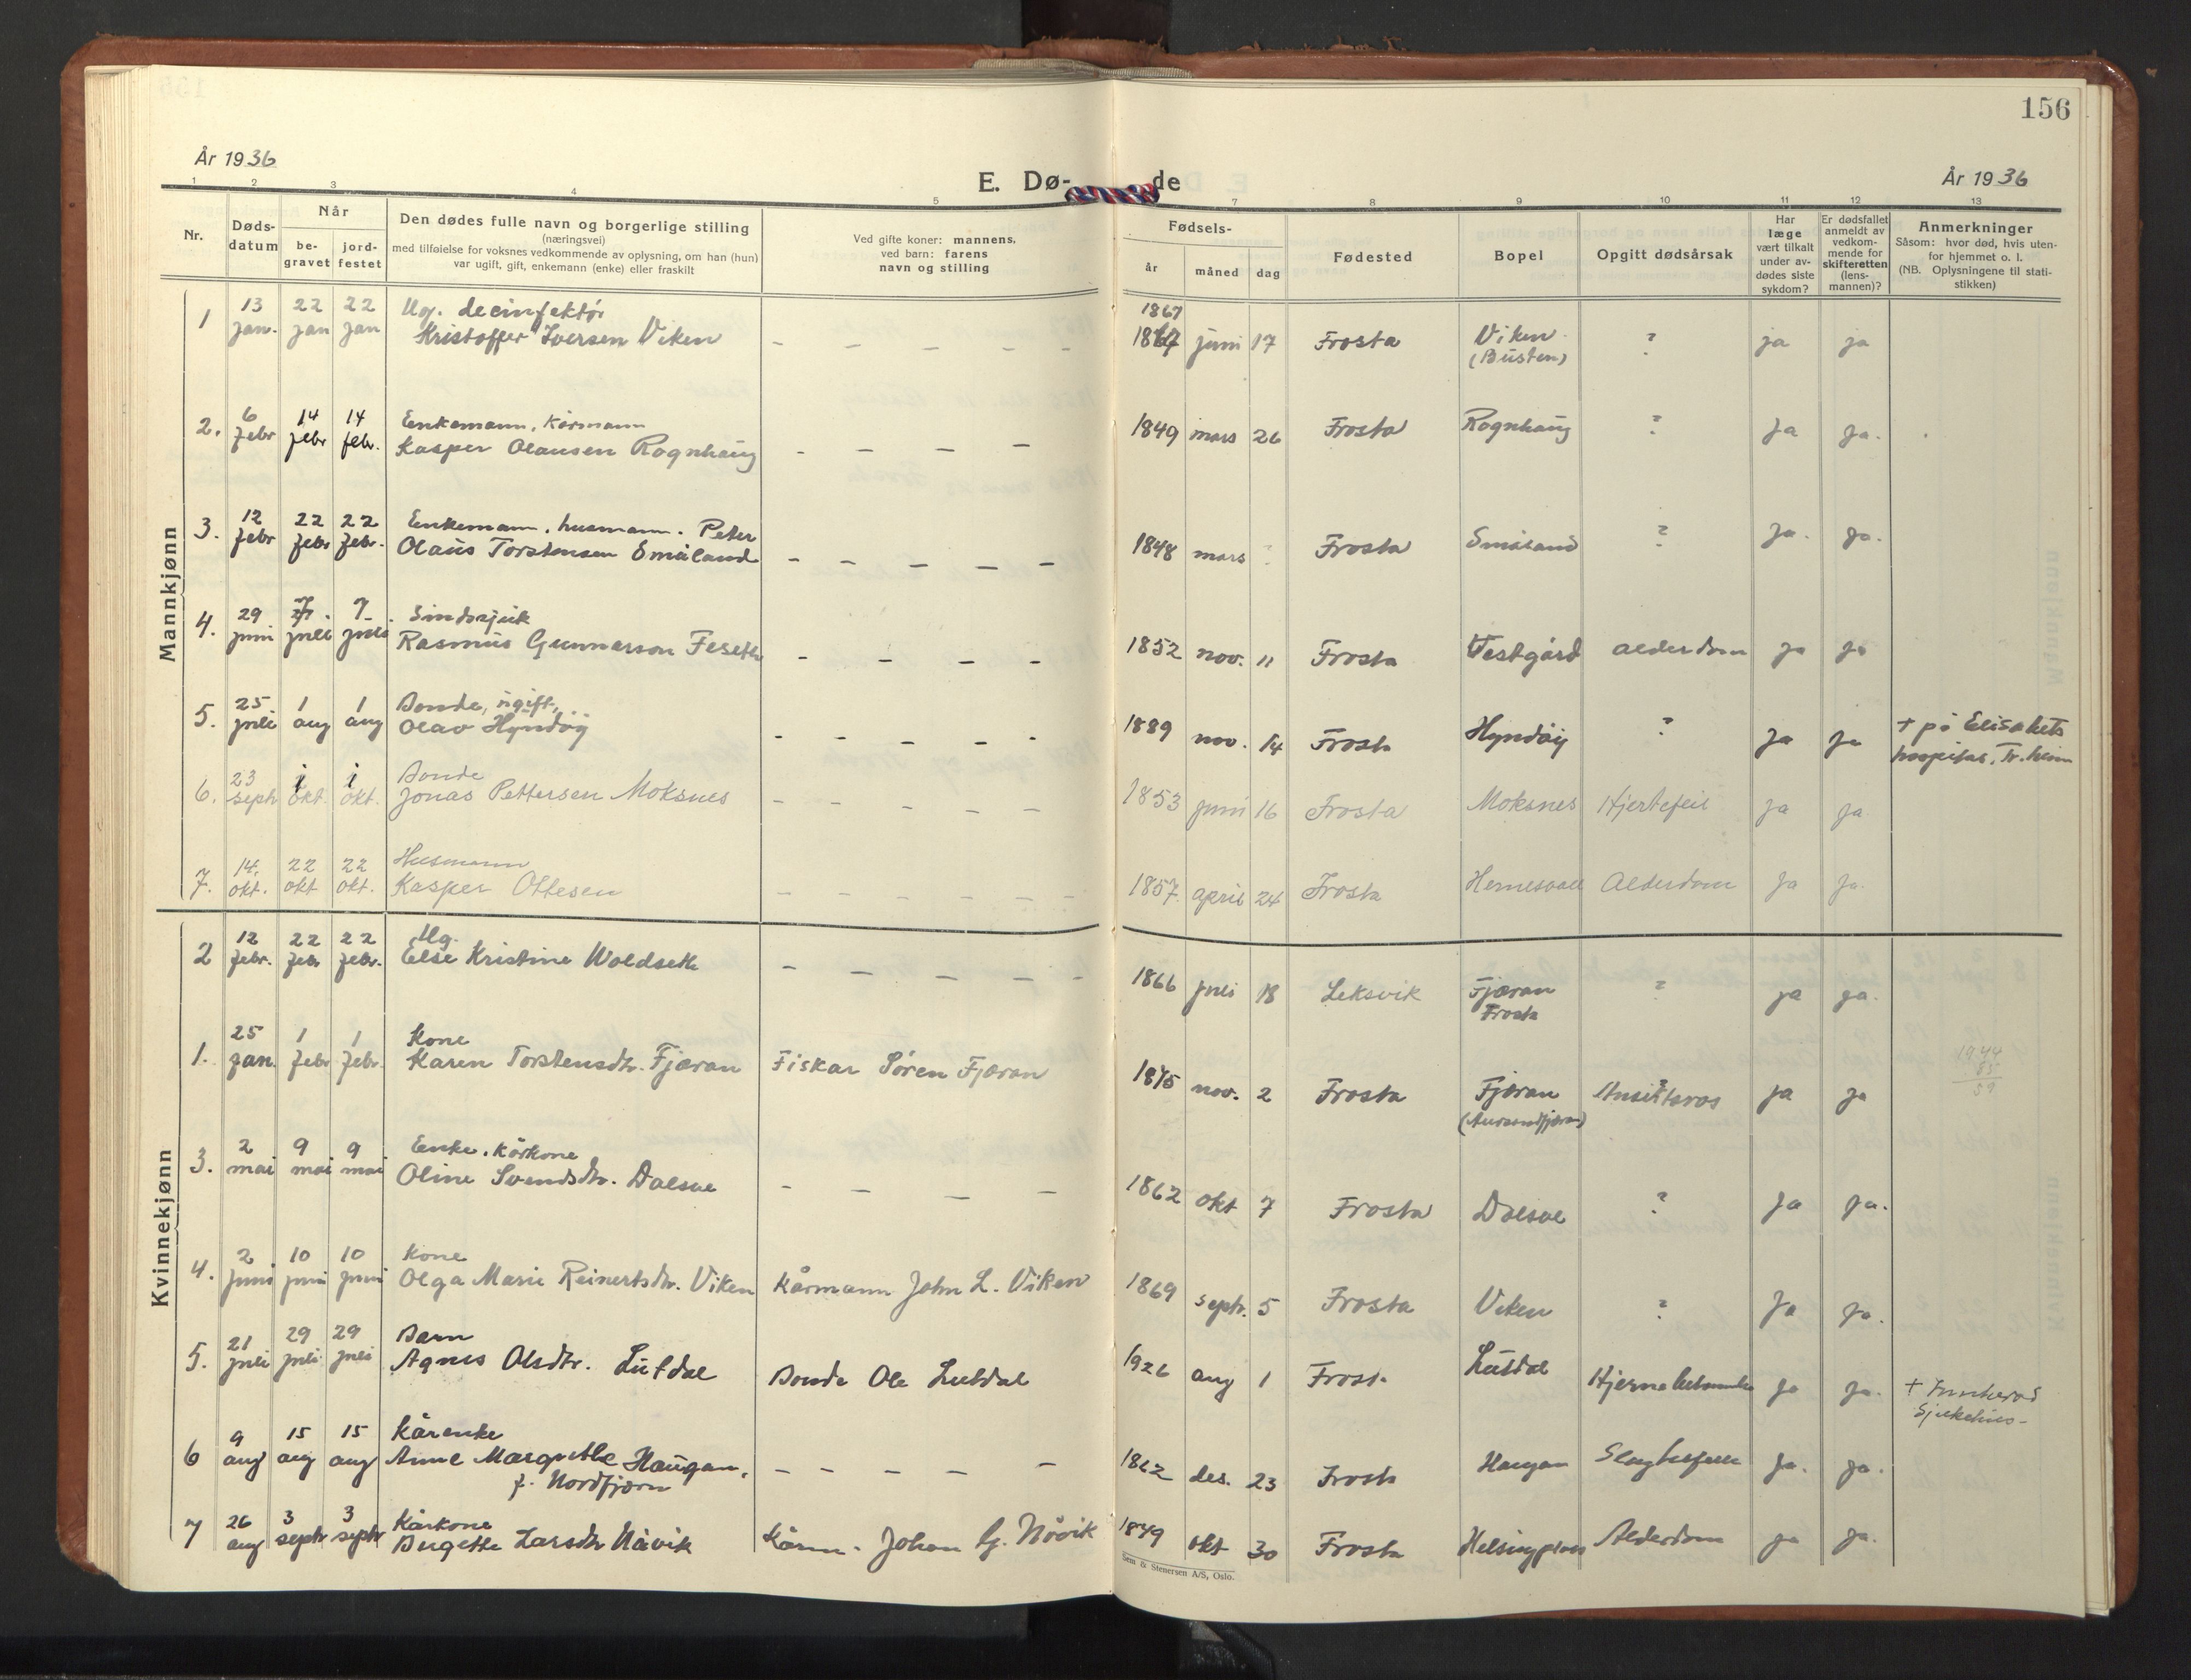 156
År 1936
E. Dø-
de
År 1936
1 2 3 4 5 7 8 9 10 11 12 13
Nr.
Døds-
datum
Når
be-
gravet
jord-
festet
Den dødes fulle navn og borgerlige stilling
(næringsvei)
med tilføielse for voksnes vedkommende av oplysning, om han (hun)
var ugift, gift, enkemann (enke) eller fraskilt
Ved gifte koner: mannens,
ved barn: farens
navn og stilling
Fødsels-
år
måned
dag
Fødested
Bopel
Opgitt dødsårsak
Har
læge
vært tilkalt
under av-
dødes siste
sykdom?
Er dødsfallet
anmeldt av
vedkom-
mende for
skifteretten
(lens-
mannen)?
Anmerkninger
Såsom: hvor død, hvis uten-
for hjemmet o. l.
(NB. Oplysningene til stati-
stikken)
Mannkjønn
1 13 jan. 22 jan 22 jan Ug. decinfektør
Kristoffer Iversen Viken – – – – – 1867 juni 17 Frosta Viken ? ja ja
1867
(Busten)
2. 6 febr 14 febr 14 febr. Enkemann, Kårmann
Kasper Olausen Rognhaug – – – – 1849 mars 26 Frosta Rognhaug ? Ja Ja.
3. 12 febr 22 febr 22 febr. Enkemann, husmann. Peter
Olaus Torstensen Småland – – – – – 1848 mars ? Frosta Småland ? Ja. Ja.
4. 29 juni 7. juli 7. juli Sindssjuk
Rasmus Gunnarson Feseth – – – – 1852 nov. 11 Frosta Vestgård alderdom Ja Ja
5. 25 juli 1 aug 1 aug Bonde, ugift,
Olav Hyndøy – – – – - 1889 nov. 14 Frosta Hyndøy ? Ja Ja + på Elisabets
hospital, Tr.heim
6. 23 septr 1 okt. 1 okt. Bonde
Jonas Pettersen Moksnes – – – – – 1853 juni 16 Frosta Moksnes Hjertefeil Ja Ja
7. 14. okt. 22 okt 22 okt. Husmann
Kasper Ottesen – – – – – – 1857. april 24 Frosta Alderdom Ja Ja.
Kvinnekjønn
2 12 febr. 22 febr 22 febr. Ug.
Else Kristine Woldseth – – – – – 1866 juli 18 Leksvik Fjæran
Frosta ? ja ja.
1. 25 jan. 1 febr 1 febr. Kone
Karen Torstensdtr. Fjæran Fiskar Søren Fjæran 1875 nov. 2 Frosta Fjæran ja ja
1944
85
59
3. 2 mai 9 mai 9 mai Enke, Kårkone
Oline Svendsdtr. Dalsve – – – – 1862 okt 7 Frosta Dalsve ? Ja Ja.
4. 2 juni 10 juni 10 juni Kone
Olga Marie Reinertsdtr. Viken Kårmann John L. Viken 1869 septr. 5 Frosta Viken ? Ja Ja.
5. 21 juli 29 juli 29 juli Barn
Agnes Olsdtr. Lutdal Bonde Ole Lutdal 1926 aug 1 Frosta Lutdal Ja Ja. + Innherad
Sjukehus-
6 9 aug 15 aug 15 aug Kårenke
Anne Margrethe Haugan, – – – – – 1862 des. 23 Frosta Haugan Ja. Ja.
f. Nordfjærn
7 26 aug 3 septr 3 septr Kårkone
Birgette Larsdtr Nåvik Kårm. Johan G. Nåvik 1849 okt 30 Frosta Helsingplass Alderdom ja ja.
Sem & Stenersen A/S, Oslo.